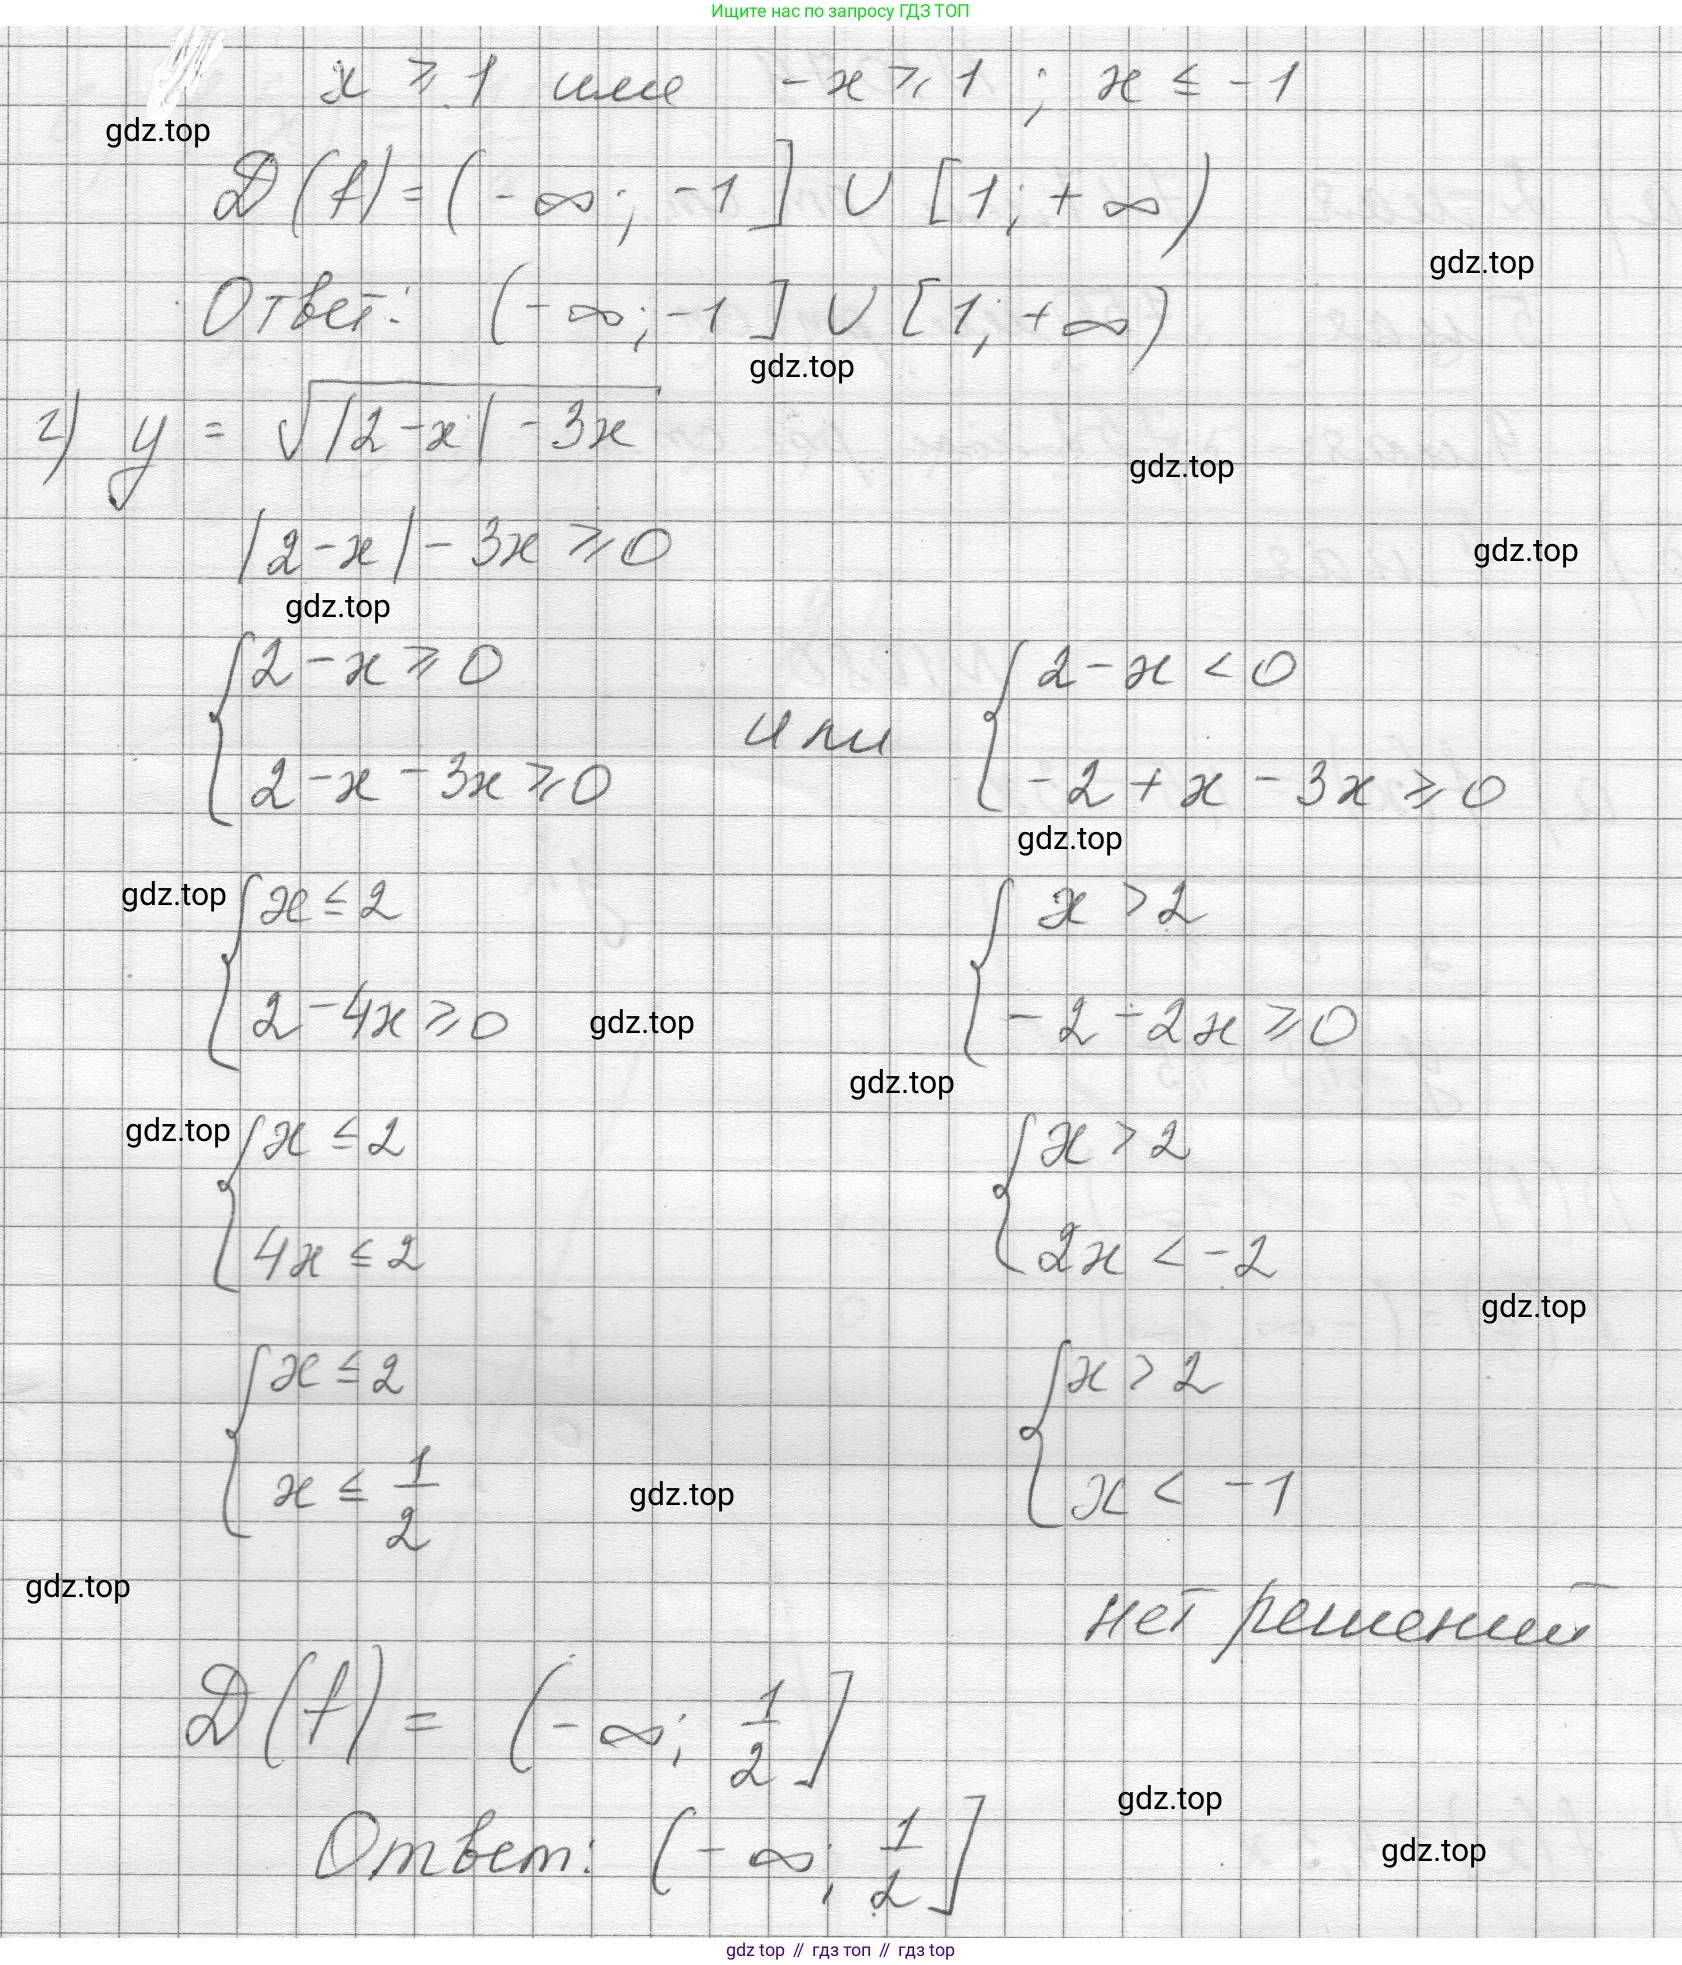 Ищите нас по запросу ГДЗ ТОП
x ≥ 1 или -x ≥ 1 ; x ≤ -1
gdz.top
D(f) = (-∞; -1] ∪ [1; +∞)
gdz.top
Ответ: (-∞; -1] ∪ [1; +∞)
gdz.top
г) y = √|2-x| - 3x
gdz.top
|2-x| - 3x ≥ 0
gdz.top
gdz.top
{ 2-x ≥ 0 { 2-x < 0
или
2-x-3x ≥ 0 -2+x-3x ≥ 0
gdz.top
gdz.top { x ≤ 2 { x > 2
2-4x ≥ 0 gdz.top -2-2x ≥ 0
gdz.top
gdz.top { x ≤ 2 { x > 2
4x ≤ 2 2x < -2
gdz.top
{ x ≤ 2 { x > 2
x ≤ 1/2 gdz.top x < -1
gdz.top
нет решений
D(f) = (-∞; 1/2]
gdz.top
Ответ: (-∞; 1/2]
gdz.top
gdz top // гдз топ // гдз top